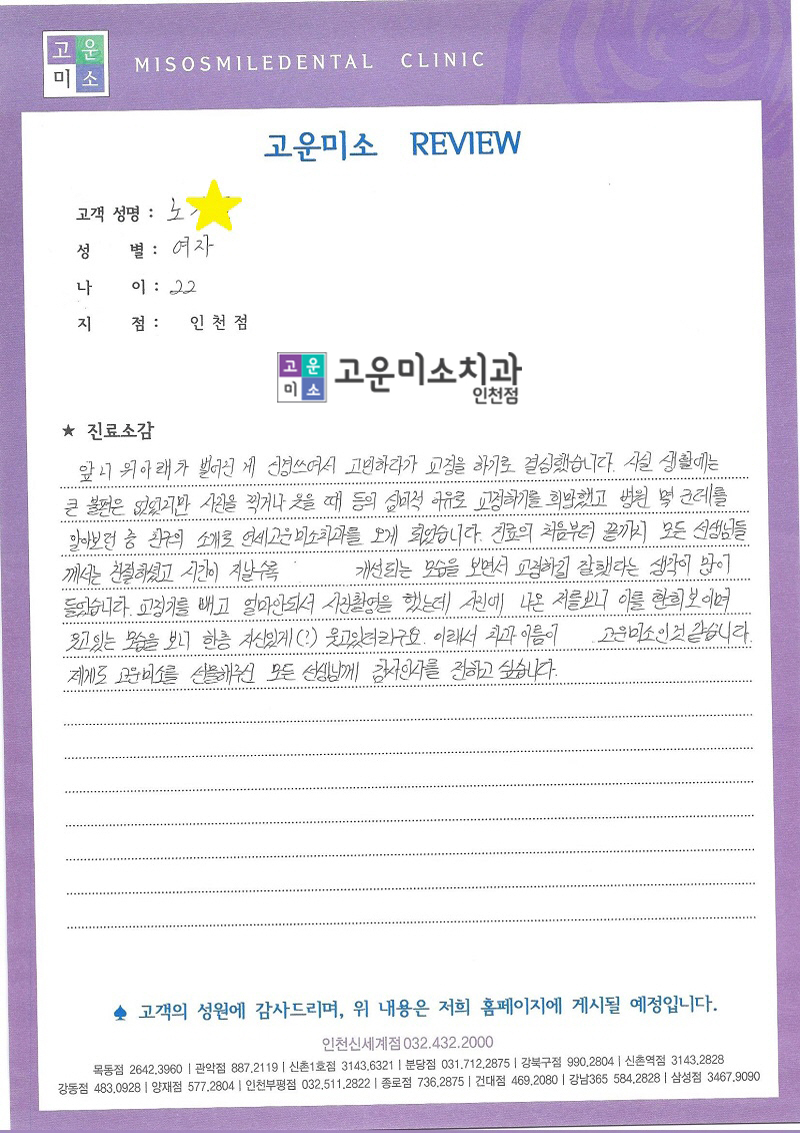 고운
미소
MISOSMILEDENTAL CLINIC
고운미소 REVIEW
고객 성명 : 노
성 별 : 여자
나 이 : 22
지 점 : 인천점
고운
미소
고운미소치과
인천점
★ 진료소감
앞니 위아래가 벌어진 게 신경쓰여서 고민하다가 교정을 하기로 결심했습니다. 사실 생활에는
큰 불편은 없었지만 사진을 찍거나 웃을 때 등의 심미적 이유로 교정하기를 희망했고 병원 몇 군데를
알아보던 중 친구의 소개로 연세고운미소치과를 오게 되었습니다. 진료의 처음부터 끝까지 모든 선생님들
께서는 친절하셨고 시간이 지날수록 개선되는 모습을 보면서 교정하길 잘했다는 생각이 많이
들었습니다. 교정기를 빼고 얼마안되서 사진촬영을 했는데 사진에 나온 저를보니 이를 환히 보이며
웃고있는 모습을 보니 한층 자신있게(?) 웃고있더라구요. 이래서 치과 이름이 고운미소인것 같습니다.
제게도 고운미소를 선물해주신 모든 선생님께 감사인사를 전하고 싶습니다.
♠ 고객의 성원에 감사드리며, 위 내용은 저희 홈페이지에 게시될 예정입니다.
인천신세계점 032.432.2000
목동점 2642.3960 | 관악점 887.2119 | 신촌1호점 3143.6321 | 분당점 031.712.2875 | 강북구점 990.2804 | 신촌역점 3143.2828
강동점 483.0928 | 양재점 577.2804 | 인천부평점 032.511.2822 | 종로점 736.2875 | 건대점 469.2080 | 강남365 584.2828 | 삼성점 3467.9090